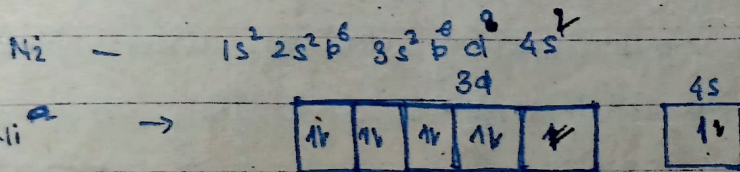 Ni — 1s² 2s² p⁶ 3s² p⁶ d⁸ 4s²
3d 4s
→ 1↓ 1↓ 1↓ 1↓ 1↓ 1↓